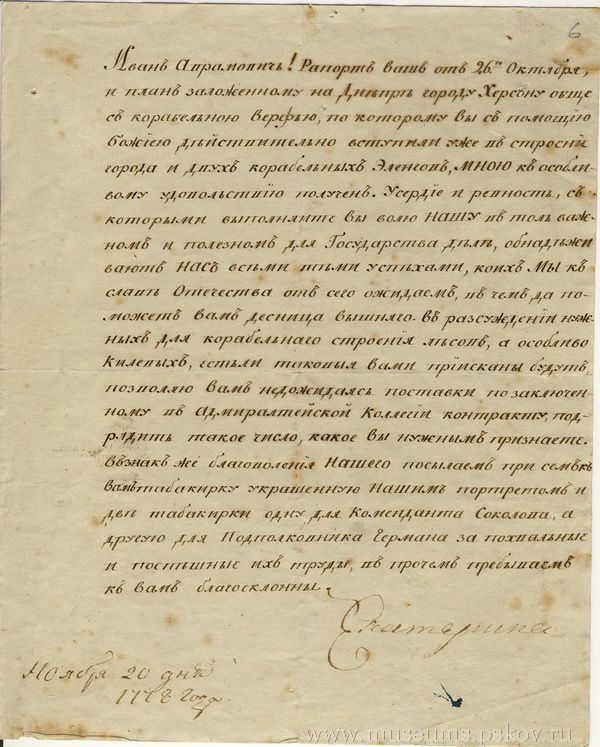 6
Иванъ Абрамовичъ! Рапортъ вашъ отъ 26.го Октября,
и планъ заложенному на Днѣпрѣ городу Херсону обще
съ корабельною Верфью, по которому Вы съ помощію
Божіею дѣйствительно вступили уже въ строеніе
города и двухъ корабельныхъ Эленговъ, мною къ особли-
вому удовольствію получен. Усердіе и ревность, съ
которыми выполняите Вы волю НАШУ въ толь важ-
номъ и полезномъ для Государства дѣлѣ, обнадѣжи
ваютъ НАСЪ всѣми тѣми успѣхами, коихъ Мы къ
славѣ Отечества отъ сего ожидаемъ, въ чемъ да по-
можетъ Вамъ десница вышняго. Въ разсужденіи нуж-
ныхъ для корабельнаго строенія лѣсовъ, а особливо
Килевыхъ, естьли таковыя Вами пріисканы будутъ,
позволяю Вамъ недожидаясь поставки по заключен-
ному въ Адмиралтейской Коллегіи контракту, под-
рядить такое число, какое Вы нужнымъ признаете.
Въ знакъ же благоволенія Нашего посылаемъ при семъ къ
Вамъ табакирку украшенную Нашимъ портретомъ и
двѣ табакирки одну для Коменданта Соколова, а
другую для Подполковника Германа за похвальные
и поспѣшные ихъ труды, въ прочемъ пребываемъ
къ Вамъ благосклонны.
Екатерина
Ноября 20 дня
1778 Года.
www.museums.pskov.ru